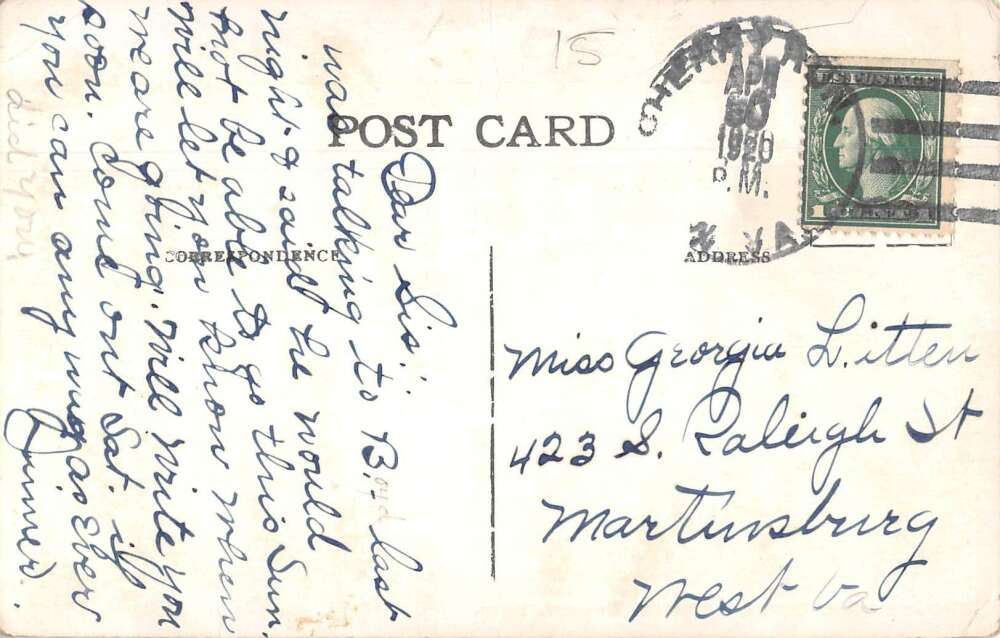 15
POST CARD
CHERRY
APR
30
1920
P.M.
W. VA.
U.S. POSTAGE
1
CORRESPONDENCE
ADDRESS
Dear Sis:
was talking to Boyd last
night & said he would
not be able to go this Sun.
Will let you know when
we are going. Will write you
soon. Come out Sat. if
you can any way as Ever
Miss Georgia Litten
423 S. Raleigh St
Martinsburg
West Va